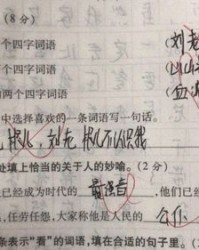 (8分)
个四字词语 (刘老
个四字词语 (山山
的两个四字词语 (血
中选择喜欢的一条词语写一句话。
刘老 不认识我
处填上恰当的关于人的妙喻。(2分)
已经成为时代的 ,他们已经
,任劳任怨,大家称他是人民的 公仆
条表示“看”的词语,填在合适的句子里。(3